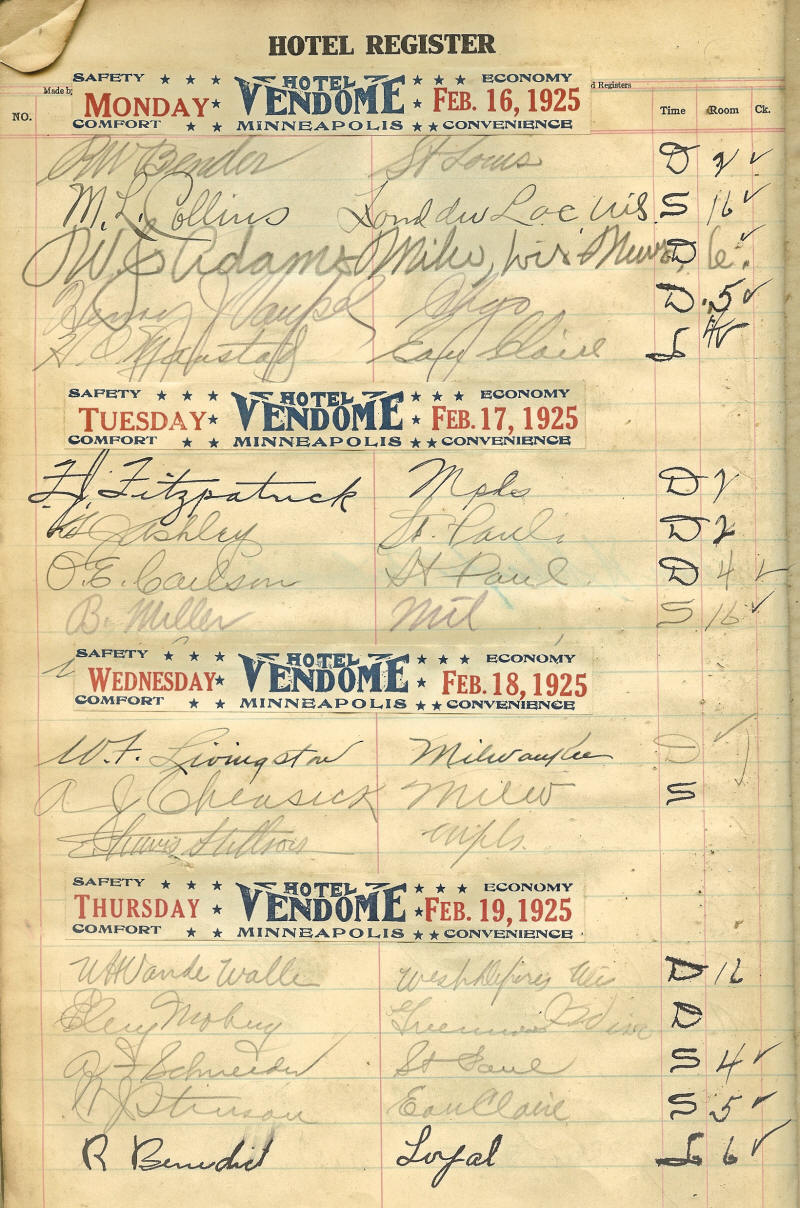 HOTEL REGISTER
Made by
d Registers
NO. Time Room Ck.
SAFETY ★ ★ ★ HOTEL ★ ★ ★ ECONOMY
MONDAY ★ VENDOME ★ FEB. 16, 1925
COMFORT ★ ★ MINNEAPOLIS ★ ★ CONVENIENCE
RW Bender St Louis D 2 ✓
M. L. Collins Fond du Lac Wis. S 16 ✓
W. S Adams Milw, Wis D 6 ✓
Henry J Chgo D 5 ✓
H Eau Claire L 4 ✓
SAFETY ★ ★ ★ HOTEL ★ ★ ★ ECONOMY
TUESDAY ★ VENDOME ★ FEB. 17, 1925
COMFORT ★ ★ MINNEAPOLIS ★ ★ CONVENIENCE
F. J. Fitzpatrick Mpls D 2
J Ashley St. Paul. D 2
O. E. Carlson St Paul D 4 ✓
B. Miller Mil S 16 ✓
SAFETY ★ ★ ★ HOTEL ★ ★ ★ ECONOMY
WEDNESDAY ★ VENDOME ★ FEB. 18, 1925
COMFORT ★ ★ MINNEAPOLIS ★ ★ CONVENIENCE
W. F. Livingston Milwaukee D ✓
A J Milw S
mpls.
SAFETY ★ ★ ★ HOTEL ★ ★ ★ ECONOMY
THURSDAY ★ VENDOME ★ FEB. 19, 1925
COMFORT ★ ★ MINNEAPOLIS ★ ★ CONVENIENCE
WH Vande Walle West Depere Wis D 12
D
A F Schneider St Paul S 4 ✓
J Stinson Eau Claire S 5 ✓
R Benedict Loyal L 6 ✓